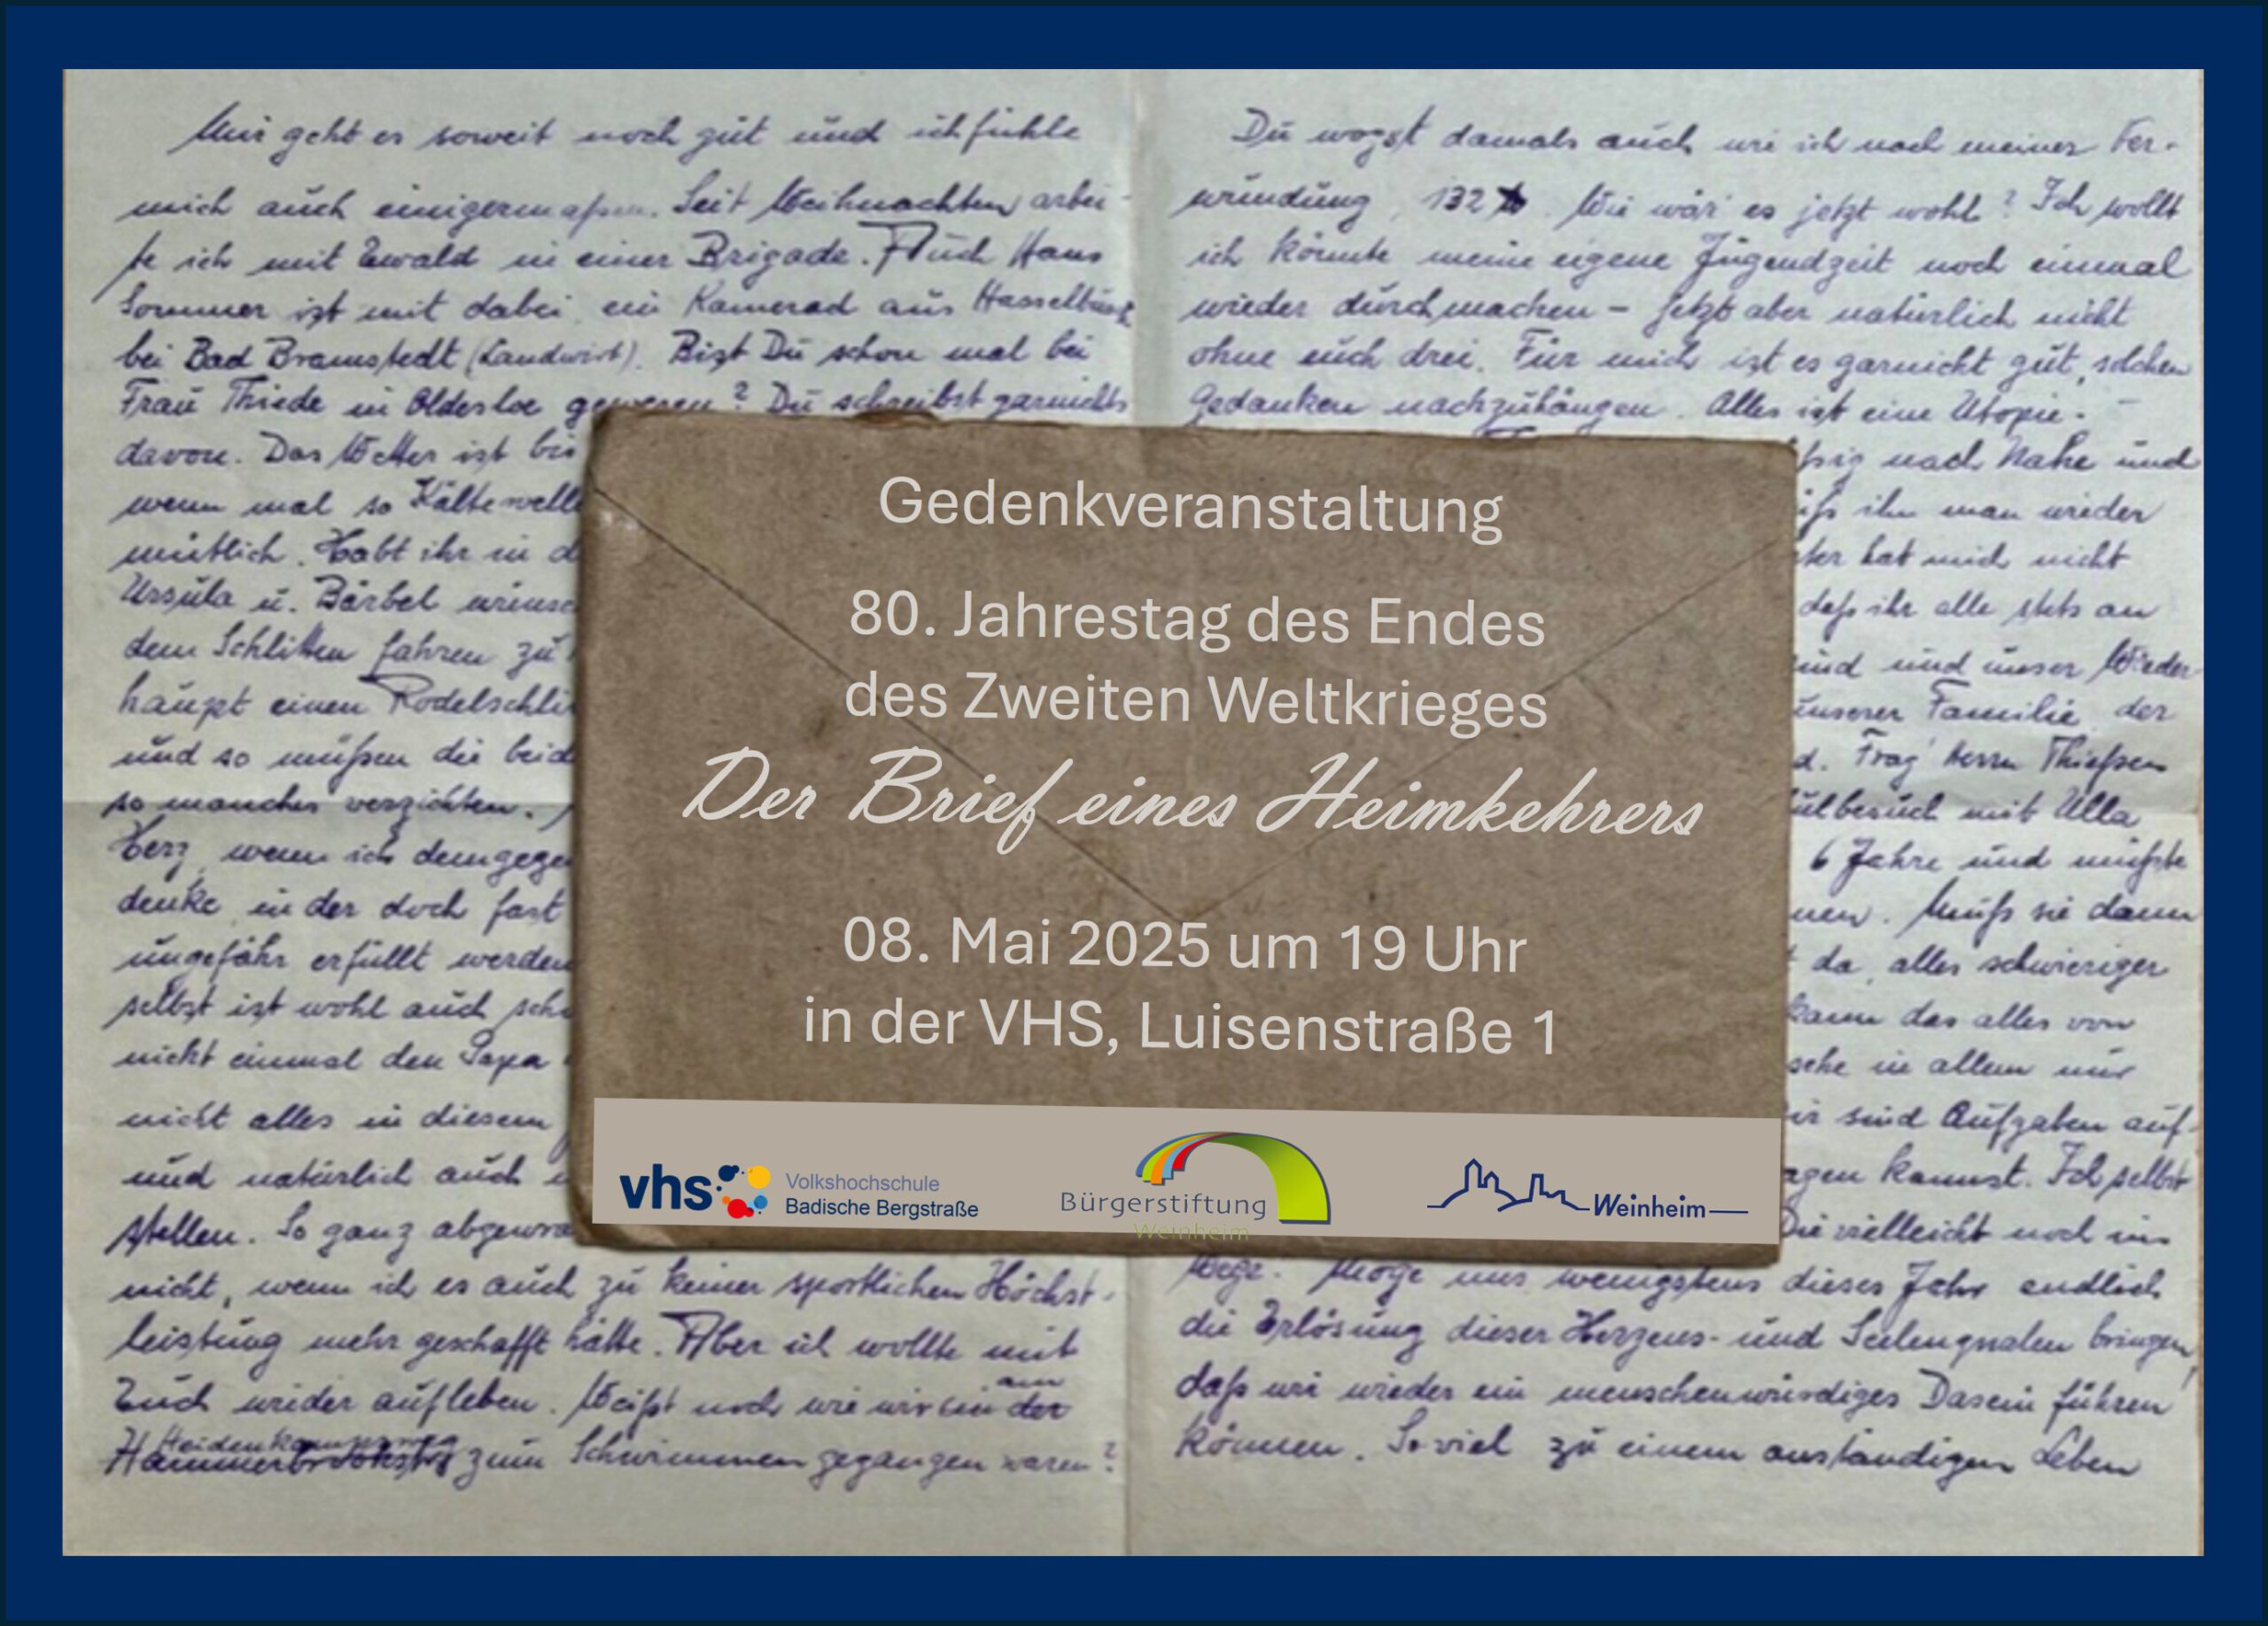 Mir geht es soweit noch gut und ich fühle
mich auch einigermaßen. Seit Weihnachten arbei-
te ich mit Ewald in einer Brigade. Auch Hans
Sommer ist mit dabei, ein Kamerad aus
bei Bad Bramstedt (Landwirt). Bist Du schon mal bei
Frau Thiede in Oldesloe gewesen? Du schreibst garnichts
davon. Das Wetter ist bis
wenn mal so Kältewelle
mütlich. Habt ihr in d
Ursula u. Bärbel wünsc
dem Schlitten fahren zu
haupt einen Rodelschli
und so müßen die beid
so manches verzichten.
Herz, wenn ich demgege
denke, in der doch fast
ungefähr erfüllt werden
selbst ist wohl auch scho
nicht einmal den Papa
nicht alles in diesem
und natürlich auch
stellen. So ganz abgewra
nicht, wenn ich es auch zu keiner sportlichen Höchst-
leistung mehr geschafft hätte. Aber ich wollte mit
Euch wieder aufleben. Weißt noch wie wir in der
am
Heidenkampsweg
zum Schwimmen gegangen waren?
Du wogst damals auch wie ich nach meiner Ver-
wundung, 132 ℔. Wie wär es jetzt wohl? Ich wollt
ich könnte meine eigene Jugendzeit noch einmal
wieder durchmachen – jetzt aber natürlich nicht
ohne euch drei. Für mich ist es garnicht gut, solchen
Gedanken nachzuhängen. Alles ist eine Utopie. –
ßig nach Nahe und
ihn man wieder
ter hat mich nicht
daß ihr alle stets an
sind und unser Wieder-
unserer Familie, der
d. Frag' Herrn Thießen
ulbesuch mit Ulla
6 Jahre und müßte
nen. Muß sie dann
da, alles schwieriger
kann das alles von
sehe in allem nur
ir sind Aufgaben auf-
agen kannst. Ich selbst
Die vielleicht noch im
Wege. Möge uns wenigstens dieses Jahr endlich
die Erlösung dieser Herzens- und Seelenqualen bringen,
daß wir wieder ein menschenwürdiges Dasein führen
können. So viel zu einem anständigen Leben
Gedenkveranstaltung
80. Jahrestag des Endes
des Zweiten Weltkrieges
Der Brief eines Heimkehrers
08. Mai 2025 um 19 Uhr
in der VHS, Luisenstraße 1
vhs Volkshochschule
Badische Bergstraße
Bürgerstiftung
Weinheim
Weinheim